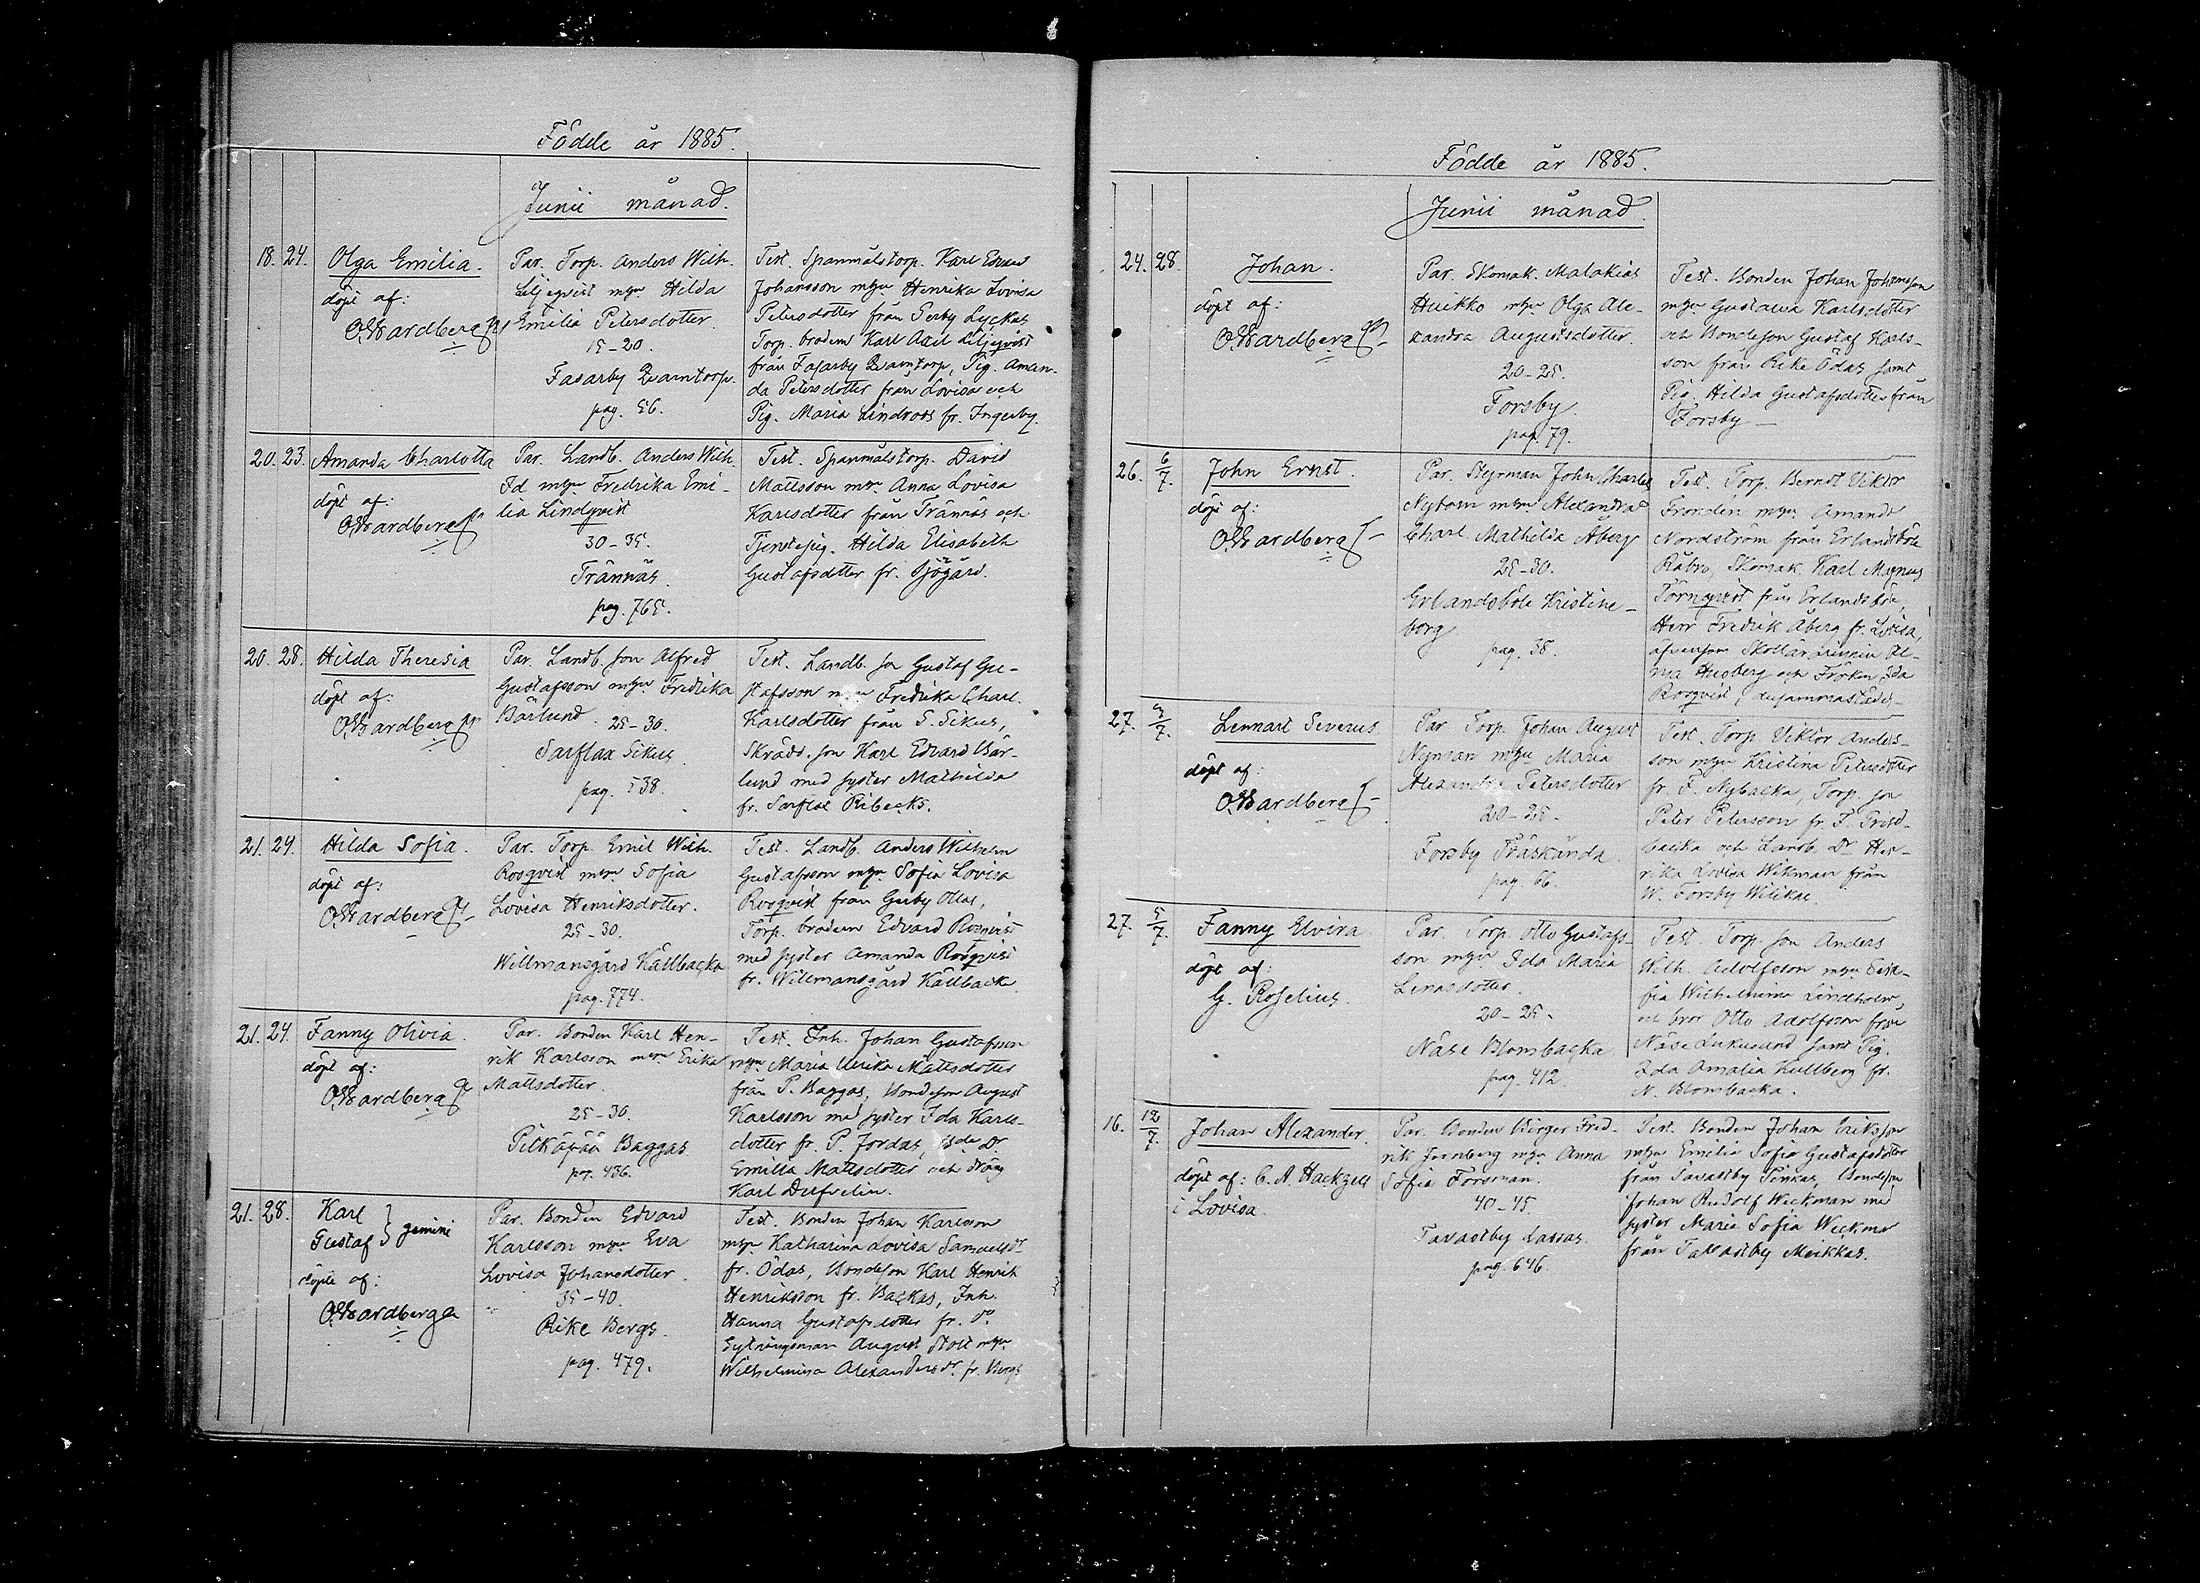 Födde år 1885.
Junii månad.
18. 24. Olga Emilia.
döpt af:
O. Wardberg
Par. Torp. Anders Wilh.
Liljeqvist m hu Hilda
Emilia Petersdotter.
15-20.
Fasarby Qvarntorp.
pag. 56.
Test. Spanmålstorp. Karl Edvard
Johansson m hu Henrika Lovisa
Petersdotter från Lyckas
Torp. brodern Karl Axel Liljeqvist
från Fasarby Qvarntorp, Pig. Aman-
da Petersdotter från Lovisa och
Pig. Maria Lindroos fr. Ingerby.
20. 23. Amanda Charlotta
döpt af:
O. Wardberg
Par. Landb. Anders Wilh.
Id m hu Fredrika Emi-
lia Lindqvist
30-35.
Trännäs.
pag. 765.
Test. Spanmålstorp. David
Mattsson m hu Anna Lovisa
Karlsdotter från Trännäs och
Tjenstepig. Hilda Elisabeth
Gustafsdtter fr. Sjögård.
20. 28. Hilda Theresia
döpt af:
O. Wardberg
Par. Landb. son Alfred
Gustafsson m hu Fredrika
Bärlund. 25-30.
Sarflax Sikus
pag. 538.
Test. Landb. son Gustaf Gu-
stafsson m hu Fredrika Charl.
Karlsdotter från S. Sikus,
Skrädd. son Karl Edvard Bär-
lund med syster Mathilda
fr. Sarflax Ribacks.
21. 24. Hilda Sofia.
döpt af:
O. Wardberg
Par. Torp. Emil Wilh.
Rosqvist m hu Sofia
Lovisa Henriksdotter.
25-30.
Willmansgård Källbacka
pag. 774.
Test. Landb. Anders Wilhelm
Gustafsson m hu Sofia Lovisa
Rosqvist från Gerby Ollas,
Torp. brodern Edvard Rosqvist
med syster Amanda Rosqvist
fr. Willmansgård Källbacka
21. 24. Fanny Olivia.
döpt af:
O. Wardberg
Par. Bonden Karl Hen-
rik Karlsson m hu Erika
Mattsdotter.
25-30.
Pitkäpää Baggas
pag. 436.
Test. Inh. Johan Gustafsson
m hu Maria Ulrika Mattsdotter
från P. Baggas, Bondeson August
Karlsson med syster Ida Karls-
dotter fr. P. Jordas, Bde Dr
Emilia Mattsdotter och dräng
Karl Dufvelin.
21. 28. Karl
Gustaf } gemini
döpte af:
O. Wardberg
Par. Bonden Edvard
Karlsson m hu Eva
Lovisa Johansdotter.
35-40.
Rike Bergs.
pag. 479.
Test. Bonden Johan Karlsson
m hu Katharina Lovisa Samuelsdr
fr. Ödas, Bondeson Karl Henrik
Henriksson fr. Backas, Inh.
Hanna Gustafsdotter fr. do
Sytningsman August Stolt m hu
Wilhelmina Alexandersdr. fr. Bergs
Födde år 1885.
Junii månad.
24. 28. Johan.
döpt af:
O. Wardberg
Par. Skomak. Malakias
Huikko m hu Olga Ale-
xandra Augustsdotter.
20-25.
Forsby.
pag. 79.
Test. Bonden Johan Johansson
m hu Gustawa Karlsdotter
och Bondeson Gustaf Karls-
son från Rike Ödas samt
Pig. Hilda Gustafsdotter från
Forsby —
26. 6/7. John Ernst.
döpt af:
O. Wardberg
Par. Styrman John Charles
Nybom m hu Alexandra
Charl. Mathilda Åberg
25-30.
Erlandsböle Kristine-
borg
pag. 38.
Test. Torp. Berndt Viktor
Frondén m hu Amanda
Nordström från Erlandsböle
Råbro, Skomak. Karl Magnus
Törnqvist från Erlandsböle,
Herr Fredrik Åberg fr. Lovisa,
Husberg och Fröken Ida
Rosqvist,
27. 5/7. Lennart Severus
döpt af:
O. Wardberg
Par. Torp. Johan August
Nyman m hu Maria
Alexandra Petersdotter
20-25.
Forsby Träskända.
pag. 66.
Test. Torp. Viktor Anders-
son m hu Kristina Petersdotter
fr. F. Nybacka, Torp. son
Peter Petersson fr. F.
backa och Landb. Dr Hen-
rika Lovisa Wikman från
W. Forsby
27. 5/7. Fanny Elvira
döpt af:
G. Roselius.
Par. Torp. Otto Gustafs-
son m hu Ida Maria
Linasdotter.
20-25.
Näse Blombacka
pag. 412.
Test. Torp. son Anders
Wilh. Adolfsson m hu Sera-
fia Wilhelmina Lindholm,
och bror Otto Adolfsson från
Näse Lukusund samt Pig.
Ida Amalia Kullberg fr.
N. Blombacka.
16. 12/7. Johan Alexander.
döpt af: C. A. Hackzell
i Lovisa.
Par. Bonden Birger Fred-
rik Jernberg m hu Anna
Sofia Forsman.
40-45.
Tavastby Lassas.
pag. 646.
Test. Bonden Johan Eriksson
m hu Emilia Sofia Gustafsdotter
från Tavastby Sinkas, Bondeson
Johan Rudolf Weckman med
syster Maria Sofia Weckman
från Tavastby Meikkas.